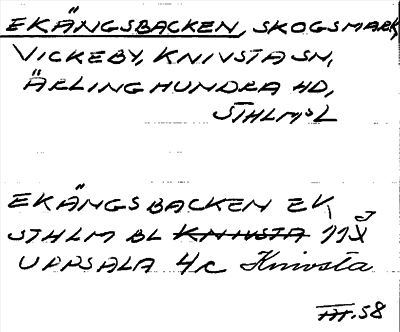 EKÄNGSBACKEN, SKOGSMARK,
VICKEBY, KNIVSTA SN,
ÄRLINGHUNDRA HD,
STHLMSL
EKÄNGSBACKEN EK,
STHLM BL KNIVSTA 11
UPPSALA 4c Knivsta
58